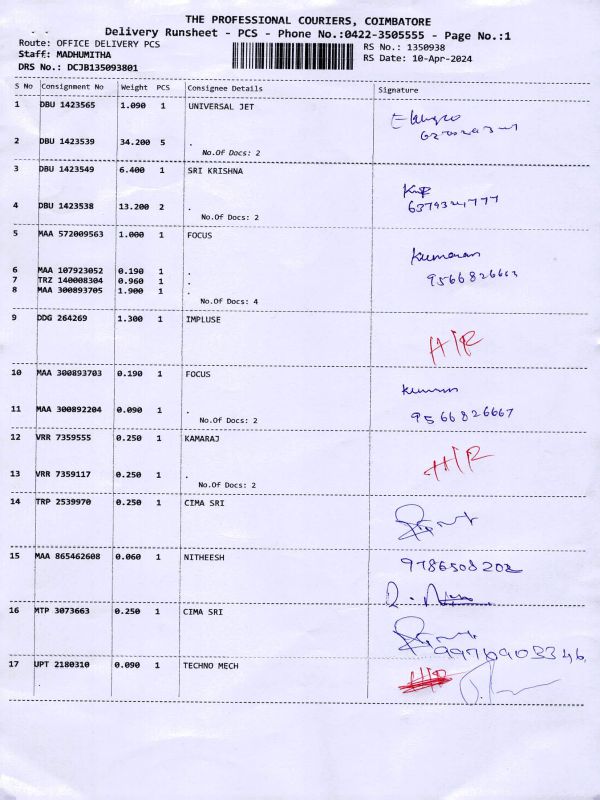 THE PROFESSIONAL COURIERS, COIMBATORE
Delivery Runsheet - PCS - Phone No.:0422-3505555 - Page No.:1
Route: OFFICE DELIVERY PCS RS No.: 1350938
Staff: MADHUMITHA RS Date: 10-Apr-2024
DRS No.: DCJB135093801
S No Consignment No Weight PCS Consignee Details Signature
1 DBU 1423565 1.090 1 UNIVERSAL JET
2 DBU 1423539 34.200 5 .
No.Of Docs: 2
3 DBU 1423549 6.400 1 SRI KRISHNA
4 DBU 1423538 13.200 2 .
No.Of Docs: 2
5 MAA 572009563 1.000 1 FOCUS
Kumaran
6 MAA 107923052 0.190 1 .
7 TRZ 140008304 0.960 1 .
8 MAA 300893705 1.900 1 .
No.Of Docs: 4
9 DDG 264269 1.300 1 IMPLUSE
H/R
10 MAA 300893703 0.190 1 FOCUS
11 MAA 300892204 0.090 1 . 9566826667
No.Of Docs: 2
12 VRR 7359555 0.250 1 KAMARAJ
H/R
13 VRR 7359117 0.250 1 .
No.Of Docs: 2
14 TRP 2539970 0.250 1 CIMA SRI
15 MAA 865462608 0.060 1 NITHEESH 9786508202
16 MTP 3073663 0.250 1 CIMA SRI
17 UPT 2180310 0.090 1 TECHNO MECH